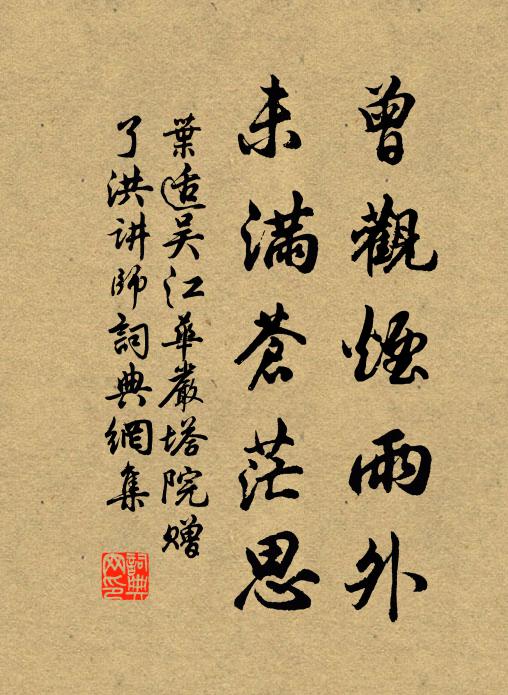 曾觀煙雨外
未滿蒼茫思
葉适吳江華嚴塔院贈
了洪讲師詞典網集
詞典
网印